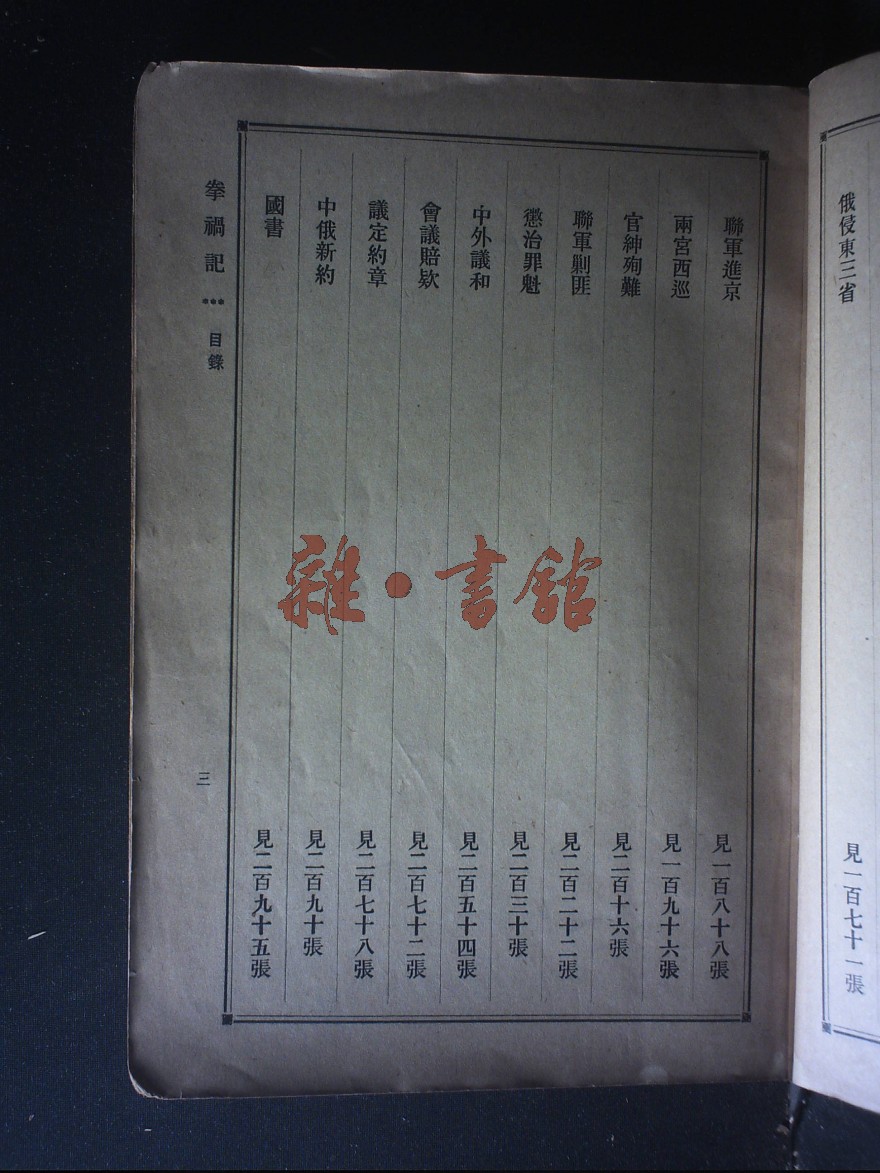 俄侵東三省 見一百七十一張
聯軍進京 見一百八十八張
兩宮西巡 見一百九十六張
官紳殉難 見二百十六張
聯軍剿匪 見二百二十二張
懲治罪魁 見二百三十張
中外議和 見二百五十四張
會議賠欵 見二百七十二張
議定約章 見二百七十八張
中俄新約 見二百九十張
國書 見二百九十五張
拳禍記 目錄 三
雜·書館